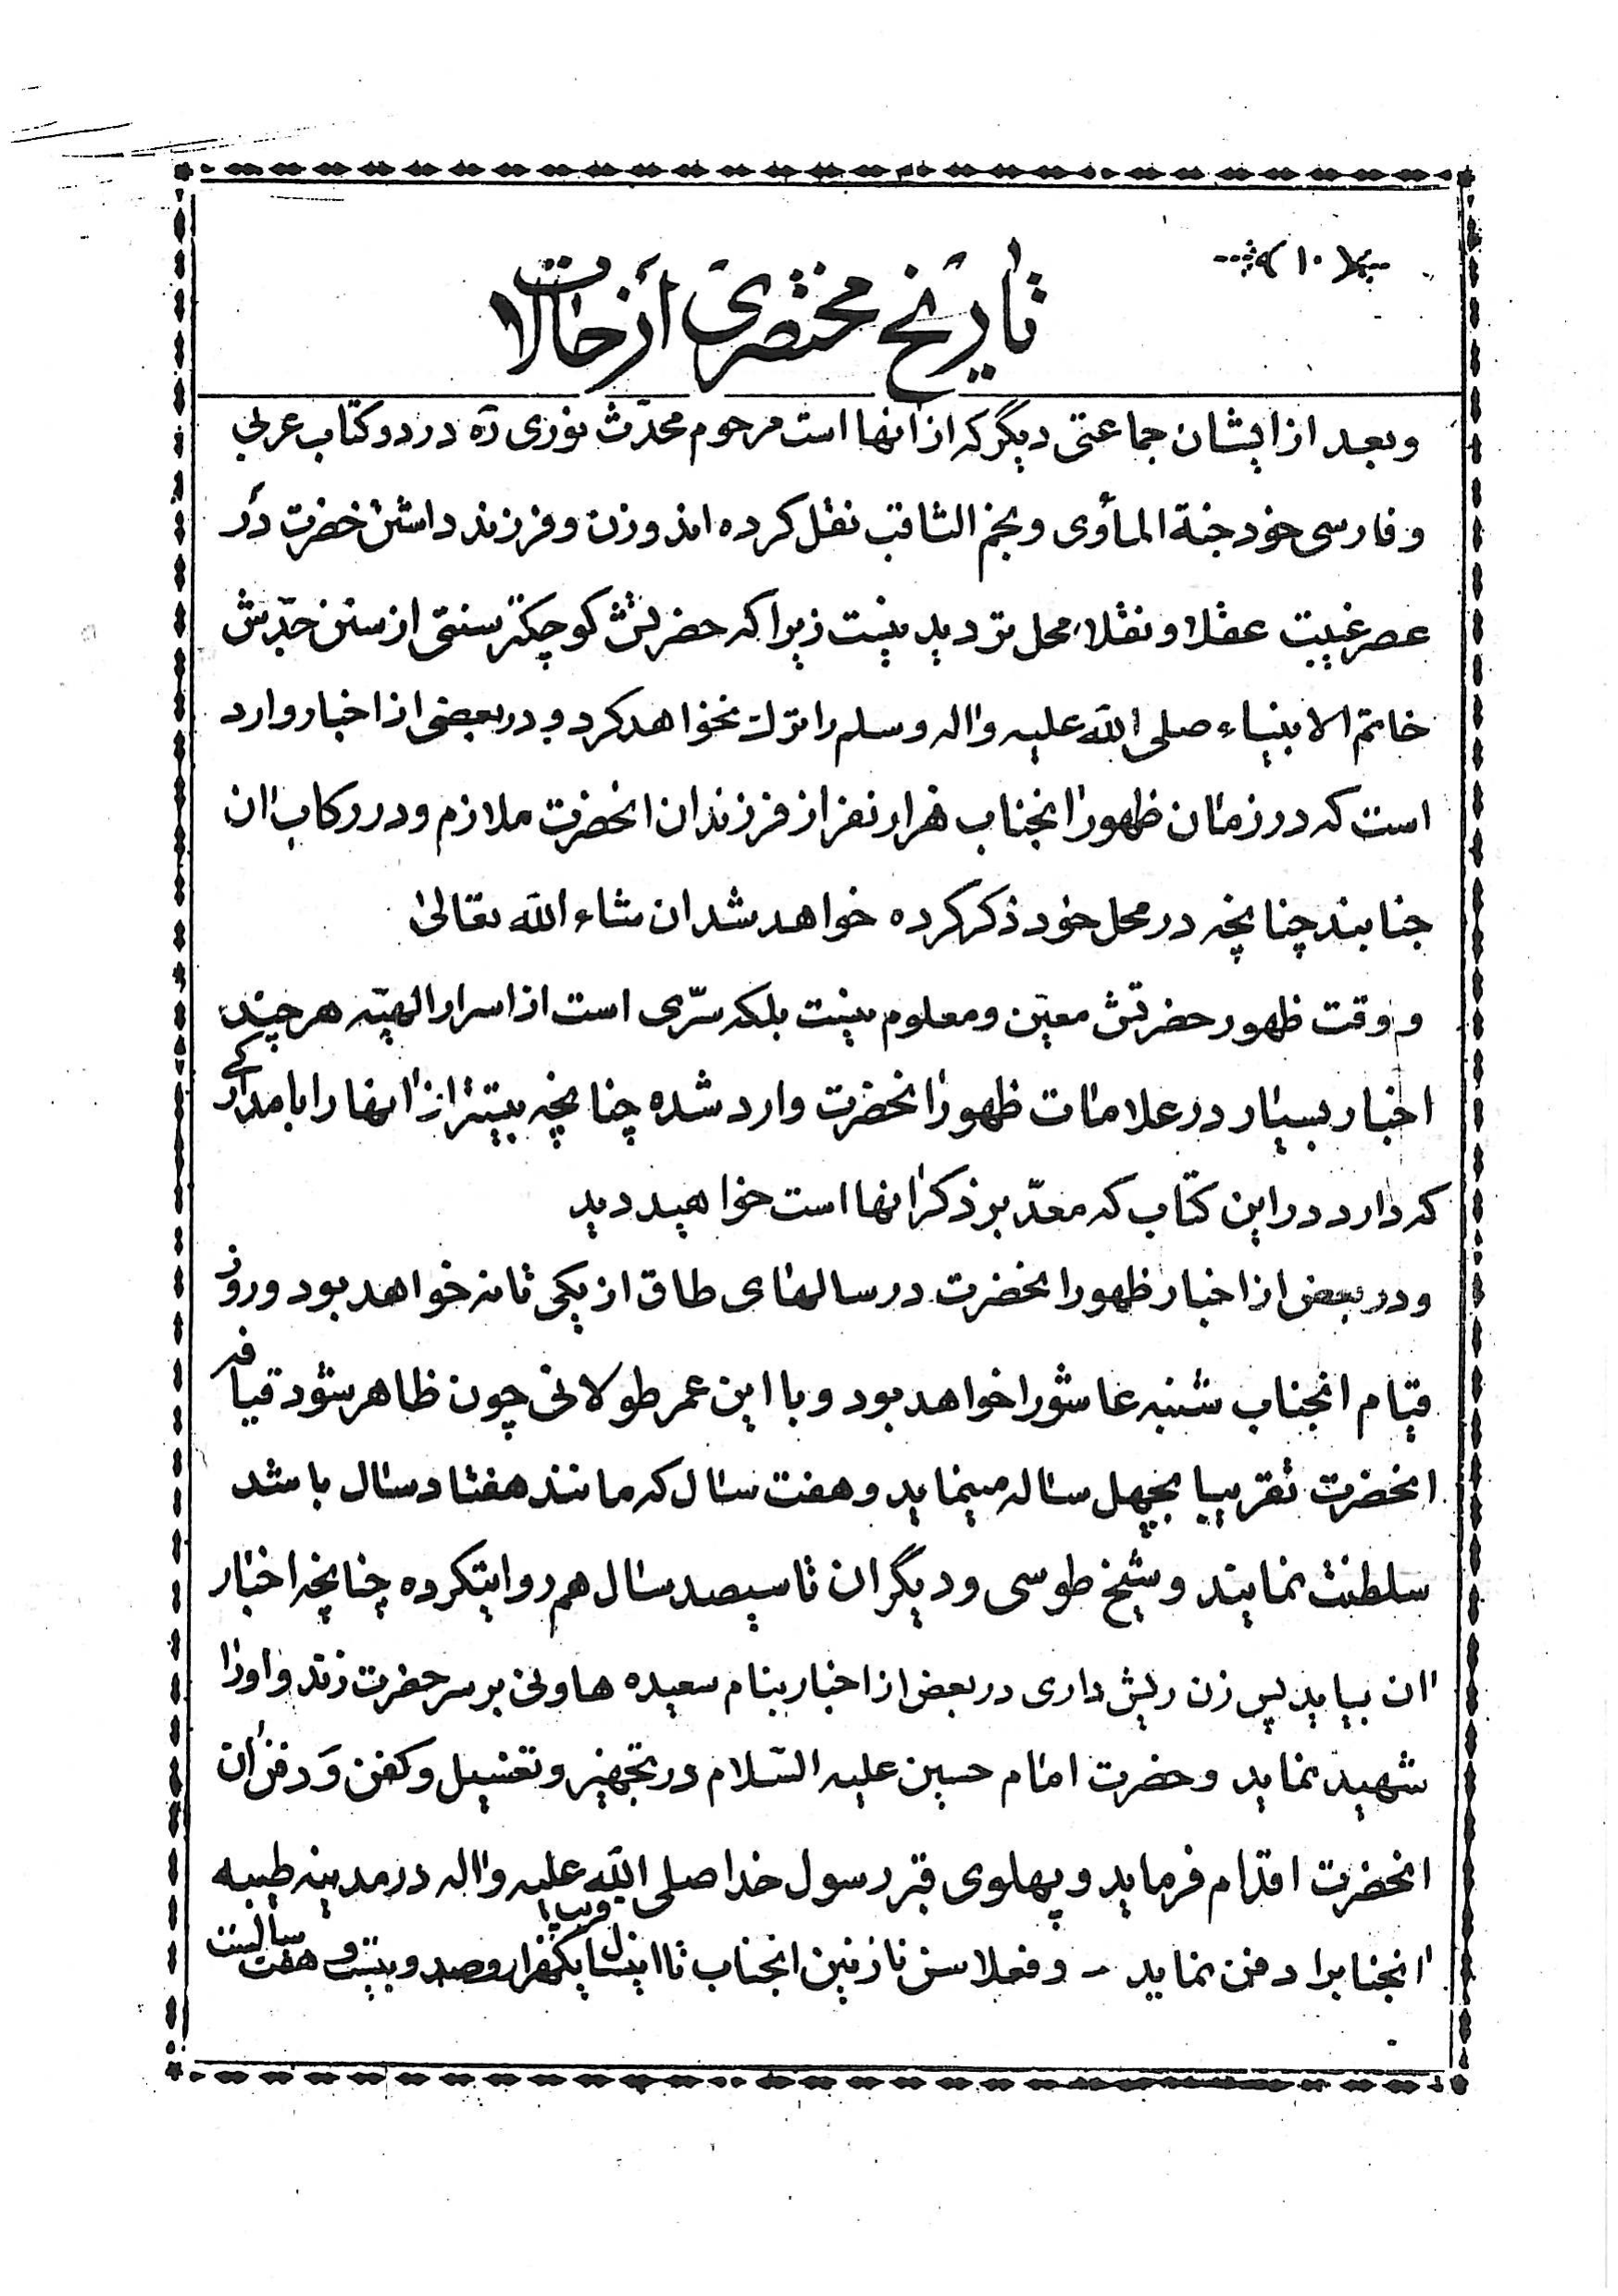 ۱۰
تاریخ مختصری از حالات
وبعد از ایشان جماعتی دیگر که از آنها است مرحوم محدّث نوری ره در دو کتاب عربی
و فارسی خود جنة المأوی و نجم الثاقب نقل کرده اند و زن و فرزند داشتن حضرت در
عصر غیبت عقلا و نقلا محل تردید نیست زیرا که حضرتش کوچکتر سنتی از سنن جدّش
خاتم الانبیاء صلی الله علیه واله وسلم را ترک نخواهد کرد و در بعضی از اخبار وارد
است که در زمان ظهور انجناب هزار نفر از فرزندان انحضرت ملازم و در رکاب ان
جنابند چنانچه در محل خود ذکر کرده خواهد شد ان شاء الله تعالی
و وقت ظهور حضرتش معیّن و معلوم نیست بلکه سرّی است از اسرار الهیّه هر چند
اخبار بسیار در علامات ظهور انحضرت وارد شده چنانچه بیشتر از انها را با مدارکی
که دارد در این کتاب که معدّ بر ذکر انها است خواهید دید
و در بعض از اخبار ظهور انحضرت در سالهای طاق از یکی تا نه خواهد بود و روز
قیام انجناب شنبه عاشورا خواهد بود و با این عمر طولانی چون ظاهر شود قیافه
انحضرت تقریبا بچهل ساله مینماید و هفت سال که مانند هفتاد سال باشد
سلطنت نمایند و شیخ طوسی و دیگران تا سیصد سال هم روایتکرده چنانچه اخبار
ان بیاید پس زن ریش داری در بعض از اخبار بنام سعیده هاونی بر سر حضرت زند و او را
شهید نماید و حضرت امام حسین علیه السّلام در تجهیز و تغسیل و کفن و دفن ان
انحضرت اقدام فرماید و پهلوی قبر رسول خدا صلی الله علیه واله در مدینه طیبه
انجنابرا دفن نماید - و فعلا سن نازنین انجناب تا اینسال قریب بیکهزار و صد و بیست و هفت سالست